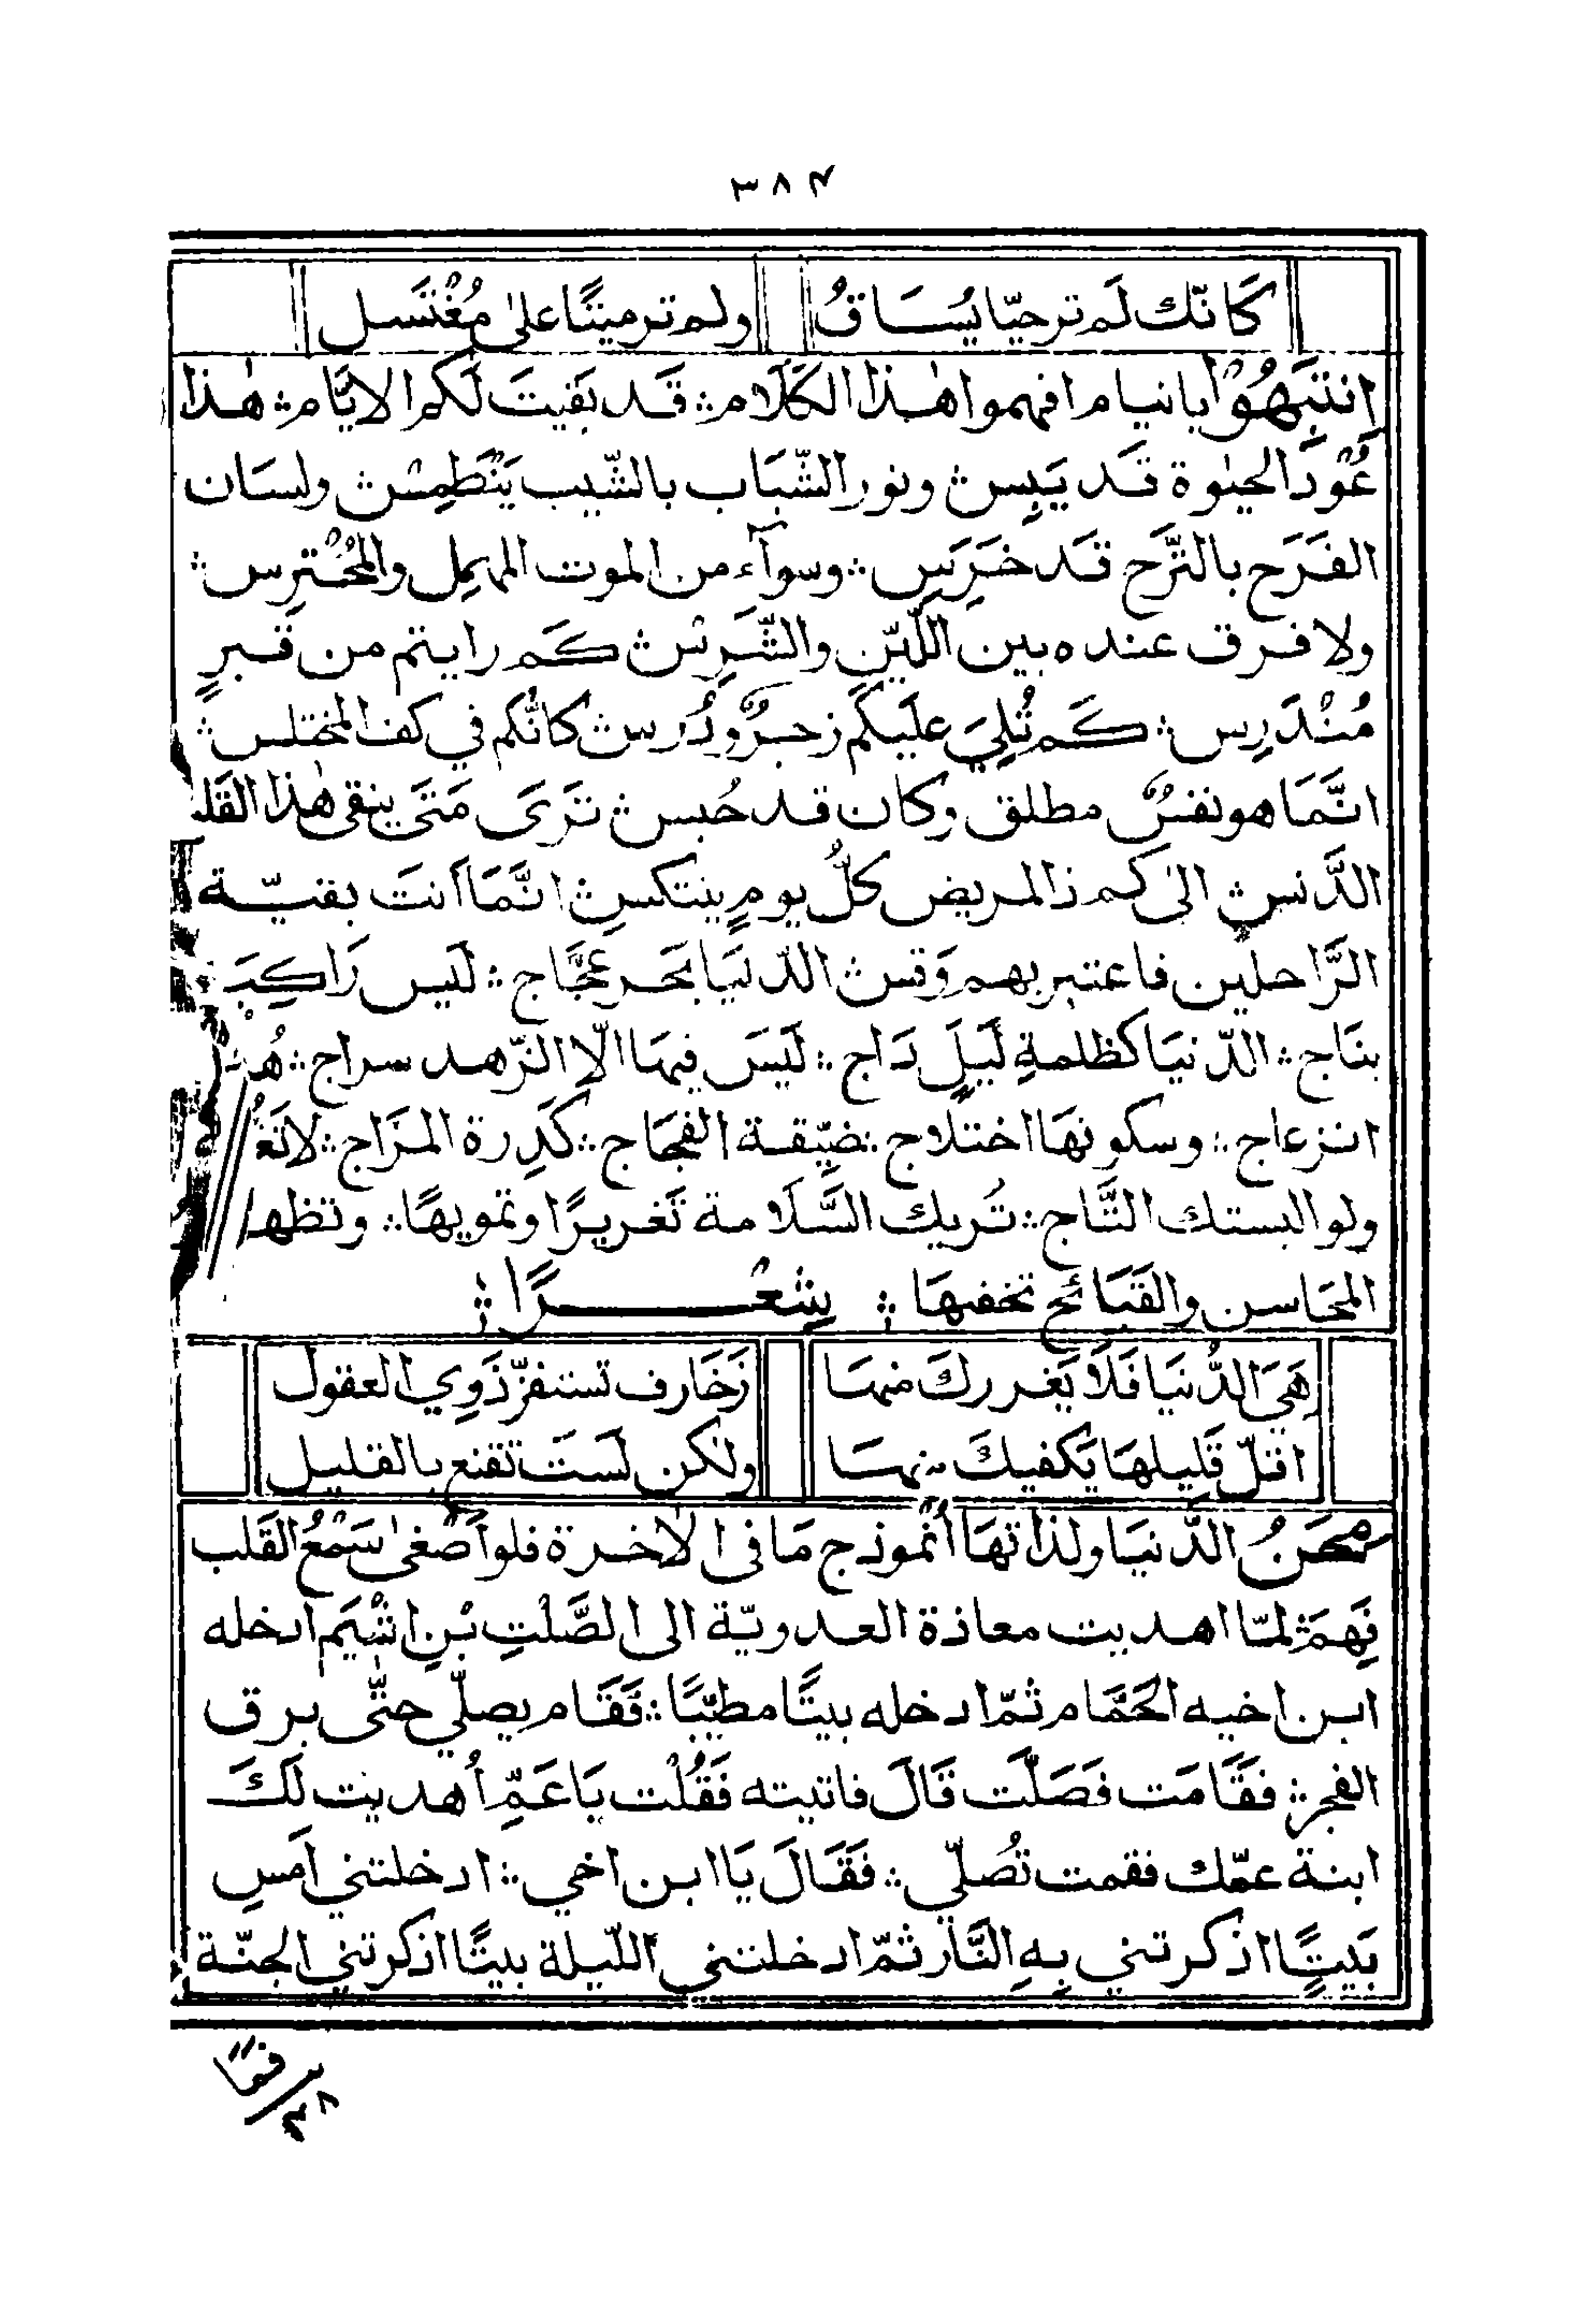 ٣٨٤
كَانّك لَم تر حيّا يُسَاقُ ولم تر ميتًا على مُغْتَسل
اِنتَبِهُوْا يا نيام افهموا هٰذا الكَلَام ؞ قَد بَقيتَ لَكم الايّام ؞ هٰذا
عُوْدَ الحيٰوة قَد يَبِس ؞ ونور الشّبَاب بالشّيب يَنْطَمِسْ ؞ ولسَان
الفَرَح بالتَّرَح قَد خَرَسِ ؞ وسوآء من الموت المهمِل والمُحْترِس ؞
ولا فرق عنده بين اللّيّنِ والشَّرِسْ ؞ كَم رايتم من قبرٍ
مُنْدَرِس ؞ كَم تُلِيَ علَيكم زجرٌ ودُرس ؞ كانّكم في كف المختلس ؞
انَّمَا هو نفسٌ مطلق وكان قد حُبس ؞ تَرَى مَتَى ينقى هٰذا القَلب
الدَّنس ؞ الىٰ كم ذا المريض كلُّ يومٍ ينتكسِ ؞ انَّمَا أنتَ بقيّة
الرَّاحلين فاعتبر بهم وَقس ؞ الدّنيَا بَحر عجَّاج ؞ لَيس رَاكِبَ
بنَاج ؞ الدّنيَا كظلمةِ لَيلٍ دَاج ؞ لَيسَ فيهَا الّا الزّهد سراج ؞
انزعاج ؞ وسكونهَا اختلاج ؞ ضيّقة الفجَاج ؞ كَدِرة المزَاج ؞ لا تَغ
ولو البستك التَّاج ؞ تُريك السَّلَامة تَغريرًا وتمويهًا ؞ وتظهر
المحَاسن والقَبَائح تخفيهَا ؞ شِعْرًا ؞
هَيَ الدُّنيَا فَلَا يَغررك منهَا زَخَارف تستفزّ ذَوِي العقول
اقلّ قَليلهَا يَكفيكَ منهَا ولٰكن لَستَ تقنع بالقليل
مِحَنُ الدَّنيَا ولذاتهَا أنْموذج مَا فى الاٰخرة فلو أصْغىٰ سَمْعُ القَلب
فَهِمَ ؞ لمّا اهديت معاذة العدويّة الى الصَّلْتِ بْنِ اشْيَم ادخله
ابن اخيه الحَمَّام ثمّ ادخله بيتًا مطيّبًا ؞ فَقَام يصلّي حتّٰى برق
الفجر ؞ فقَامَت فصَلَّت قَالَ فاتيته فَقُلْت يَا عَمِّ أُهديت لَكَ
ابنة عمّك فقمت تُصلّي ؞ فَقَالَ يَا ابن اخي ؞ ادخلتني اَمسِ
بَيتًا اذكرتني بِهِ النَّار ثمّ ادخلتني اللّيلة بيتًا اذكرتني الجنّة